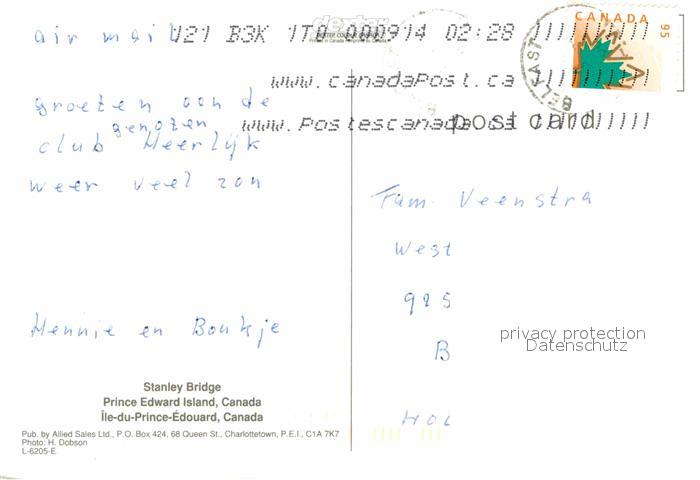 air mail
121 B3K 1T0 000914 02:28
CANADA
95
BELFAST
www.canadaPost.ca
www.Postescanada.ca
post card
groeten aan de
genoten
club Heerlijk
weer veel zon
Hennie en Boukje
Fam. Veenstra
West
925
B
HOL
privacy protection
Datenschutz
Stanley Bridge
Prince Edward Island, Canada
Île-du-Prince-Édouard, Canada
Pub. by Allied Sales Ltd., P.O. Box 424, 68 Queen St., Charlottetown, P.E.I., C1A 7K7
Photo: H. Dobson
L-6205-E